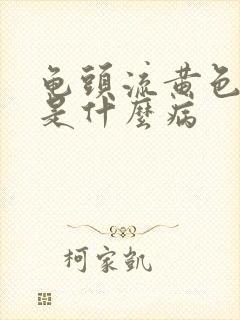 龟頭流黄色
是什麼病
柯家凱